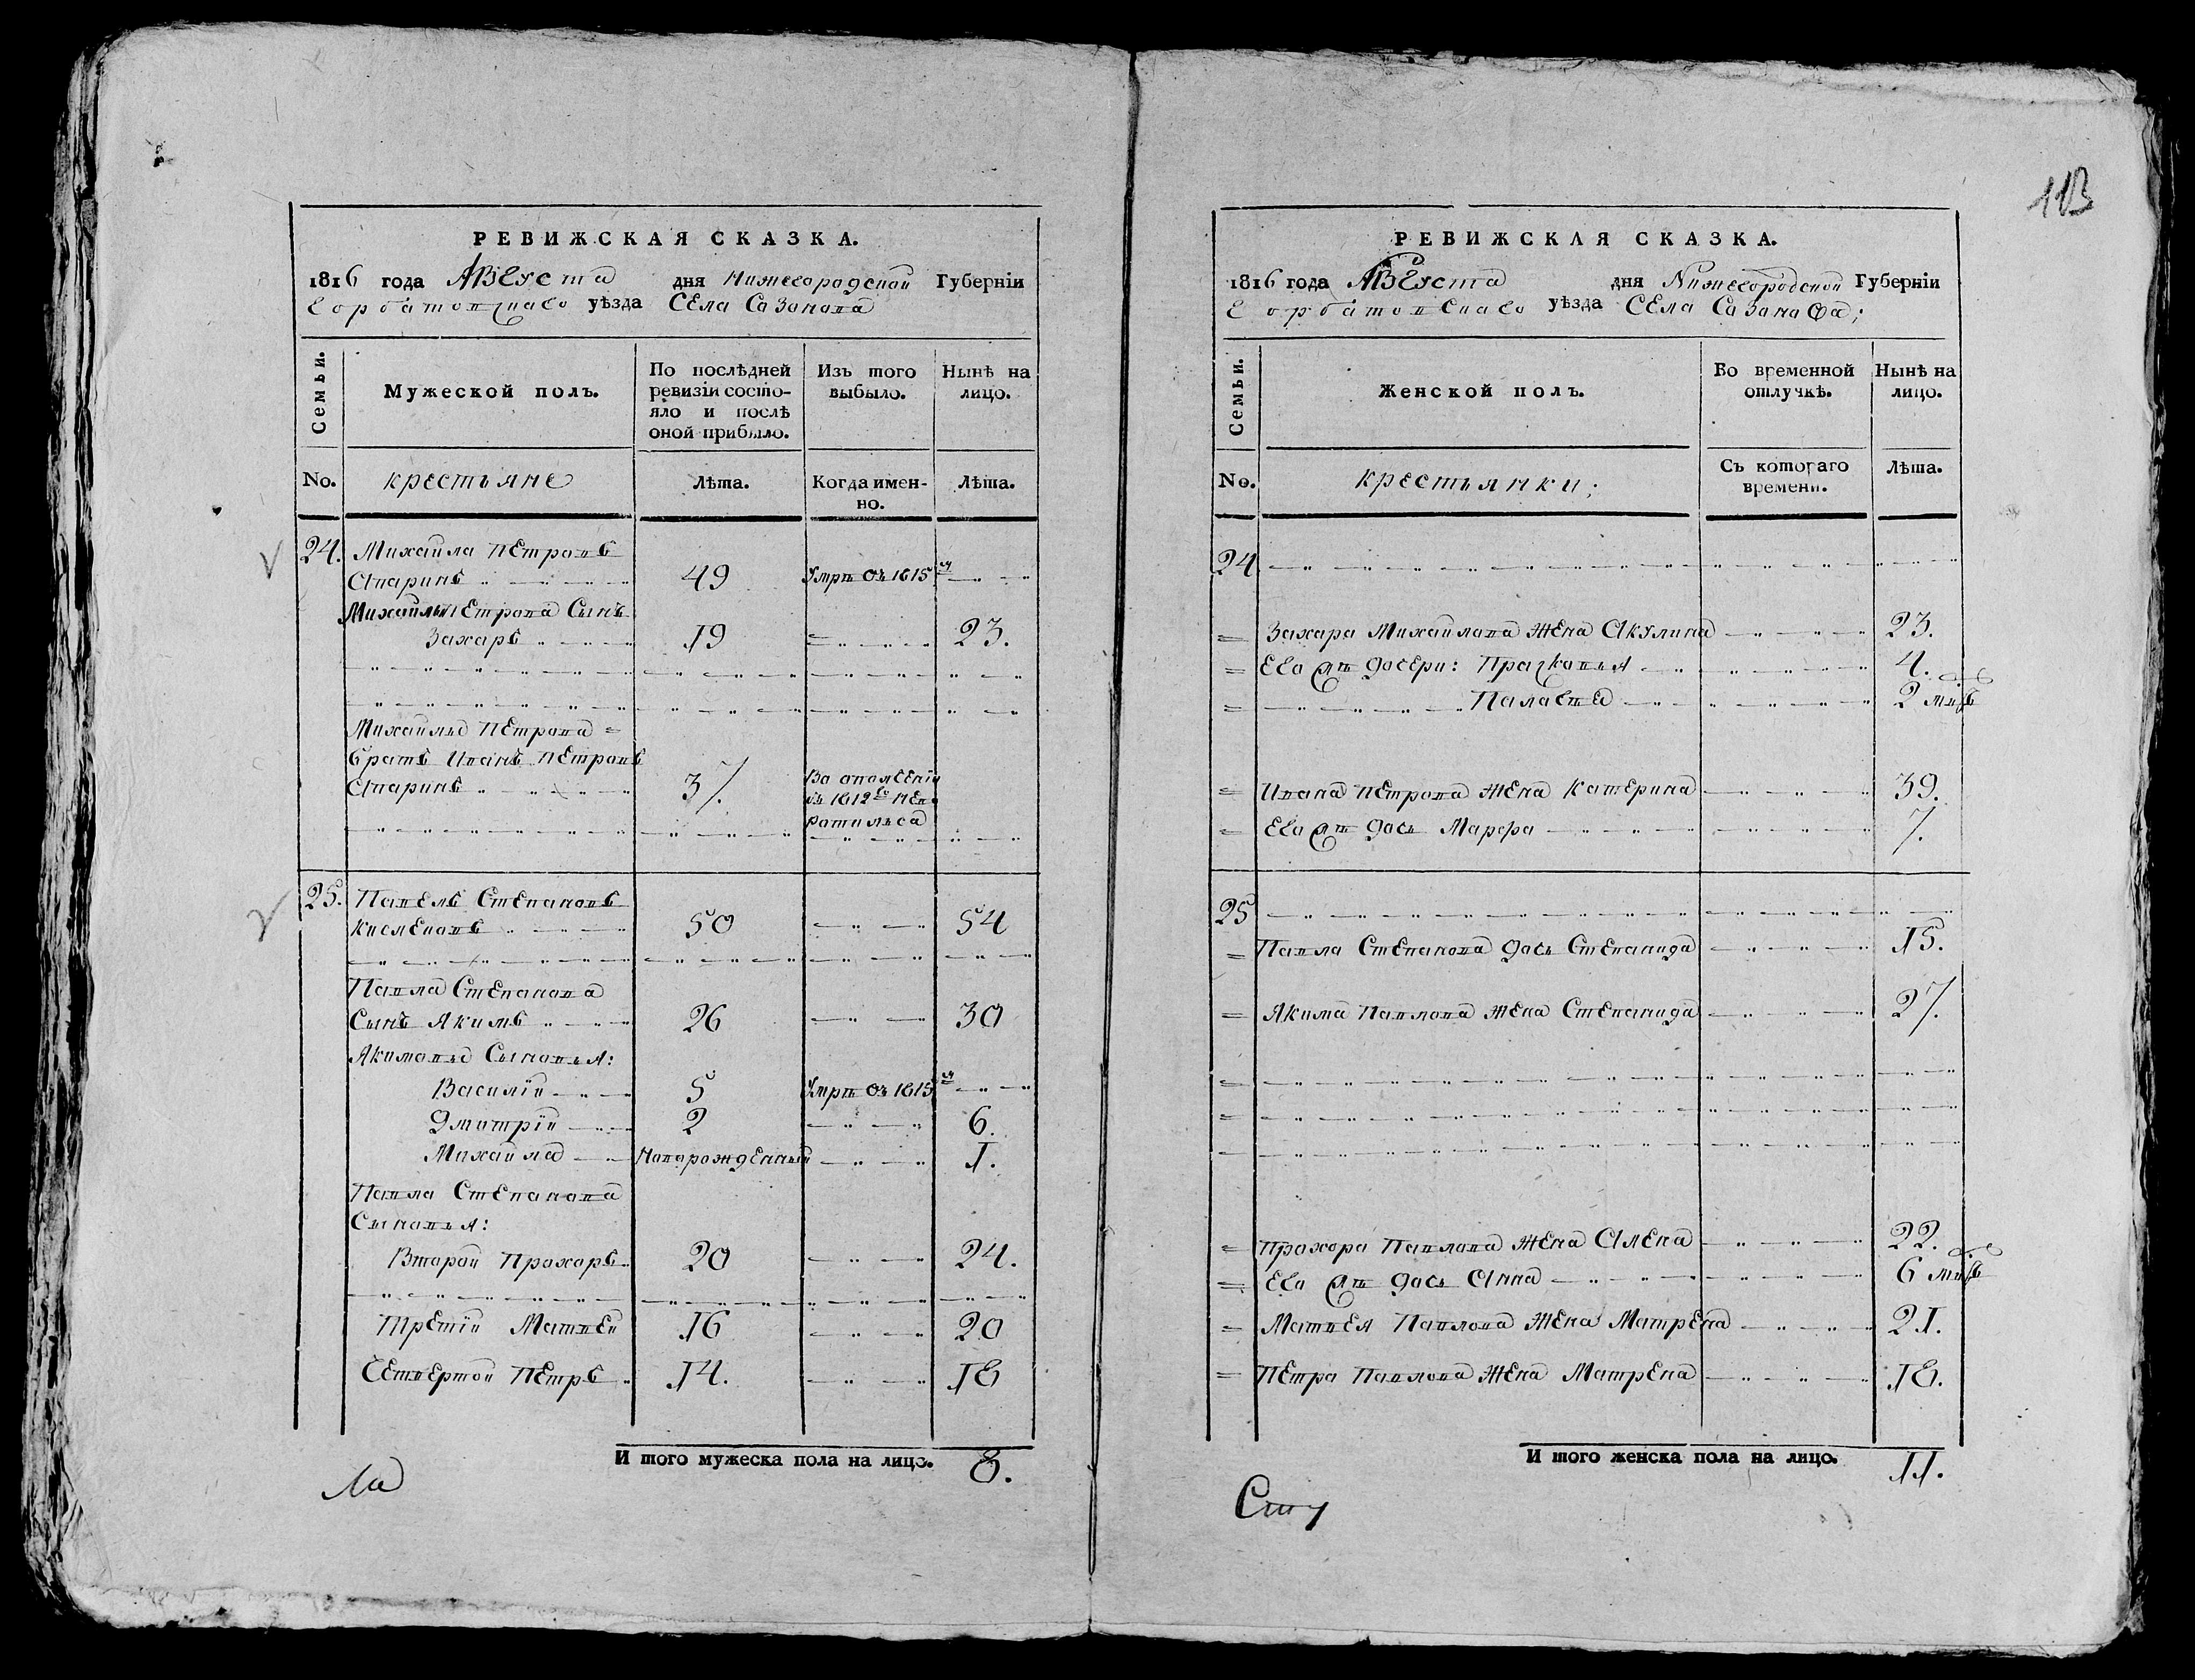 113
РЕВИЖСКАЯ СКАЗКА.
1816 года Августа дня Нижегородской Губерніи
Горбатовскаго уѣзда Села Сазонова
Семьи.
Мужеской полъ.
По послѣдней ревизіи состояло и послѣ оной прибыло.
Изъ того выбыло.
Нынѣ на лицо.
No. крестьяне Лѣта. Когда именно. Лѣта.
24. Михаила Петровъ
Апаринъ 49 Умре въ 1815м
Михаилы Петрова Сынъ
Захаръ 19 23.
Михаилы Петрова
братъ Иванъ Петровъ
Апаринъ 37. Во ополченіи
въ 1812го неворотился
25. Павелъ Степановъ
Киселевъ 50 54
Павла Степанова
Сынъ Якимъ 26 30
Якимовы Сыновья:
Василій 5 Умре въ 1815м
Дмитрій 2 6.
Михаила Новорожденный 1.
Павла Степанова
Сыновья:
Второй Прохоръ 20 24.
Третій Матвей 16 20
Четвертой Петръ 14. 18
И того мужеска пола на лицо. 8.
РЕВИЖСКАЯ СКАЗКА.
1816 года Августа дня Нижегородской Губерніи
Горбатовскаго уѣзда Села Сазонова;
Семьи.
Женской полъ.
Во временной отлучкѣ.
Нынѣ на лицо.
No. крестьянки; Съ котораго времени. Лѣта.
24
Захара Михаилова жена Акулина 23.
Его дочери: Прасковья 4.
Палагея 2 мцъ
Ивана Петрова жена Катерина 39.
Его дочь Марфа 7.
25
Павла Степанова дочь Степанида 15.
Якима Павлова жена Степанида 27.
Прохора Павлова жена Алена 22.
Его дочь Анна 6 мцъ
Матвея Павлова жена Матрена 21.
Петра Павлова жена Матрена 18.
И того женска пола на лицо. 11.